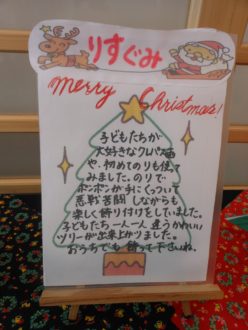 りすぐみ
merry Christmas!
子どもたちが
大好きなクレパス画
や、初めてのりも使って
みました。のりで、
ポンポンが手にくっついて
悪戦苦闘しながらも
楽しく飾り付けをしていました。
子どもたち一人一人違うかわいい
ツリーが出来上がりました。
おうちでも飾って下さいね。